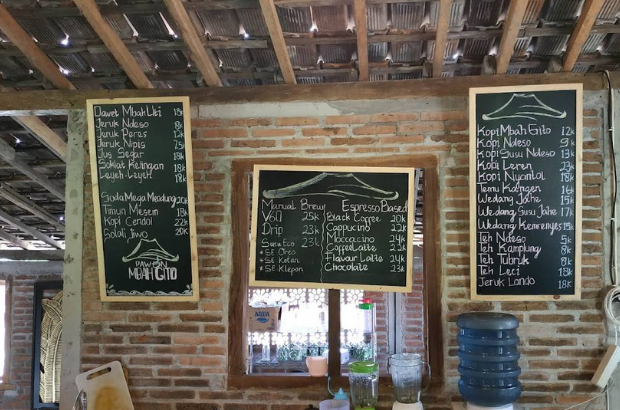 Dawet Mbah Uti 13k
Jeruk Ndeso 8k
Jeruk Peres 12k
Jeruk Nipis 75k
Jus Segar 18k
Soklat Kelingan 18k
Leyeh-Leyeh 18k
Soda Mega Mendung 20k
Timun Mesem 18k
Kopi Cendol 22k
Solali Jiwo 20k
PAWON
MBAH GITO
Manual Brew
V60 25k
Drip 23k
Susu Eco 23k
* SE Oreo
* SE Ketan
* SE Klepon
Espresso Based
Black Coffee 20k
Cappucino 22k
Moccacino 24k
Coffee Latte 22k
Flavour Latte 24k
Chocolate 23k
Kopi Mbah Gito 12k
Kopi Ndeso 9k
Kopi Susu Ndeso 13k
Kopi Leren 23k
Kopi Nyantol 18k
Temu Kangen 16k
Wedang Jahe 15k
Wedang Susu Jahe 17k
Wedang Kemrenyes 15k
Teh Ndeso 5k
Teh Kampung 8k
Teh Tubruk 8k
Teh Leci 18k
Jeruk Londo 18k
AQUA